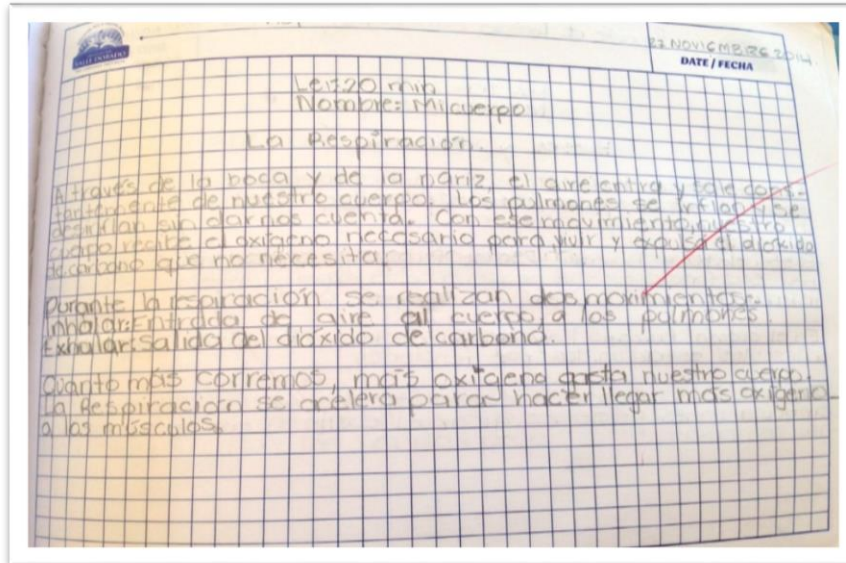 VALLE DORADO
22 NOVIEMBRE 2014.
DATE / FECHA
Leí: 20 min
Nombre: Mi cuerpo
La Respiración.
A través de la boca y de la nariz, el aire entra y sale cons-
tantemente de nuestro cuerpo. Los pulmones se inflan y se
desinflan sin darnos cuenta. Con ese movimiento, nuestro
cuerpo recibe el oxígeno necesario para vivir y expulsa el dióxido
de carbono que no necesita.
Durante la respiración se realizan dos movimientos:
Inhalar: Entrada de aire al cuerpo, a los pulmones
Exhalar: Salida del dióxido de carbono.
Cuanto más corremos, más oxígeno gasta nuestro cuerpo.
La Respiración se acelera para hacer llegar más oxígeno
a los músculos.